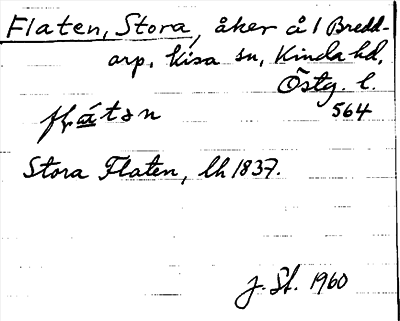 Flaten, Stora, åker å 1 Bredd-
arp, Kisa sn, Kinda hd,
Östg. l.
564
Stora Flaten, lh 1837.
J. St. 1960